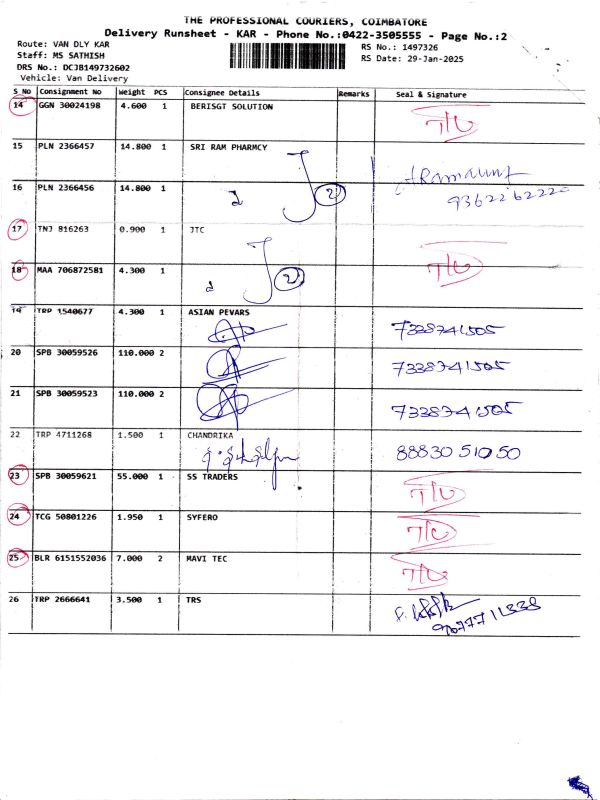 THE PROFESSIONAL COURIERS, COIMBATORE
Delivery Runsheet - KAR - Phone No.:0422-3505555 - Page No.:2
Route: VAN DLY KAR RS No.: 1497326
Staff: MS SATHISH RS Date: 29-Jan-2025
DRS No.: DCJB149732602
Vehicle: Van Delivery
S_No Consignment No Weight PCS Consignee Details Remarks Seal & Signature
14 GGN 30024198 4.600 1 BERISGT SOLUTION
15 PLN 2366457 14.800 1 SRI RAM PHARMCY
16 PLN 2366456 14.800 1 2
17 TNJ 816263 0.900 1 JTC
18 MAA 706872581 4.300 1 2
19 TRP 1540677 4.300 1 ASIAN PEVARS 7338741505
20 SPB 30059526 110.000 2 7338741505
21 SPB 30059523 110.000 2 7338741505
22 TRP 4711268 1.500 1 CHANDRIKA 88830 51050
23 SPB 30059621 55.000 1 SS TRADERS
24 TCG 50801226 1.950 1 SYFERO
25 BLR 6151552036 7.000 2 MAVI TEC
26 TRP 2666641 3.500 1 TRS